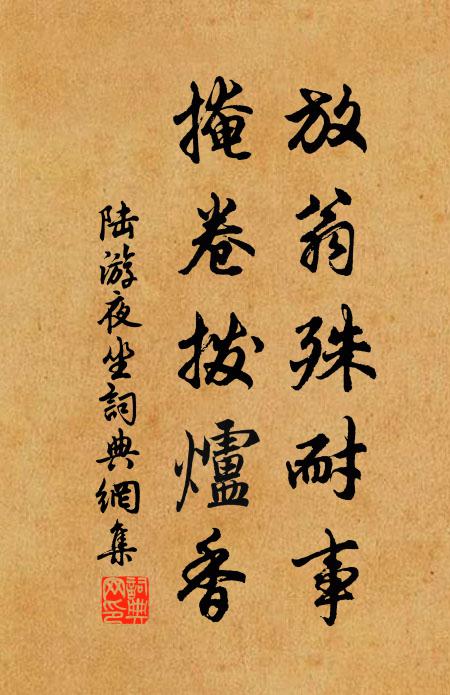 放翁殊耐事
掩卷拨爐香
陆游夜坐詞典網集
詞典网印